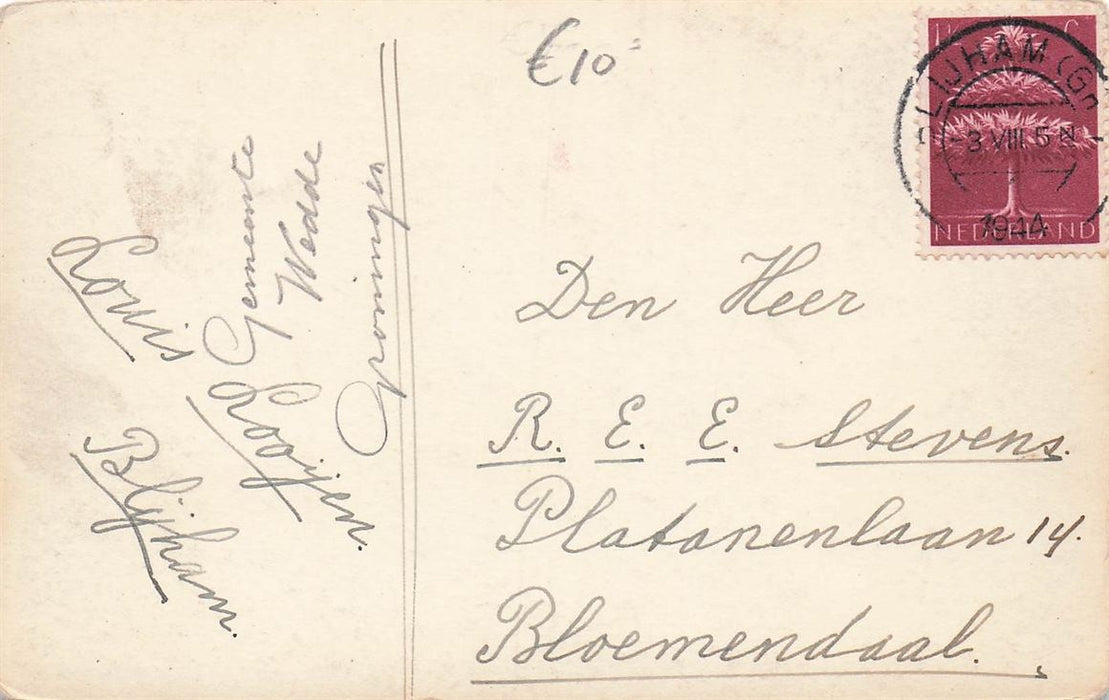 €10
Louis Looijen.
Blijham.
Gemeente
Wedde
Groningen
BLIJHAM (Gr
3.VIII.5 N
1944
NEDERLAND
Den Heer
R. E. E. Stevens.
Platanenlaan 14.
Bloemendaal.